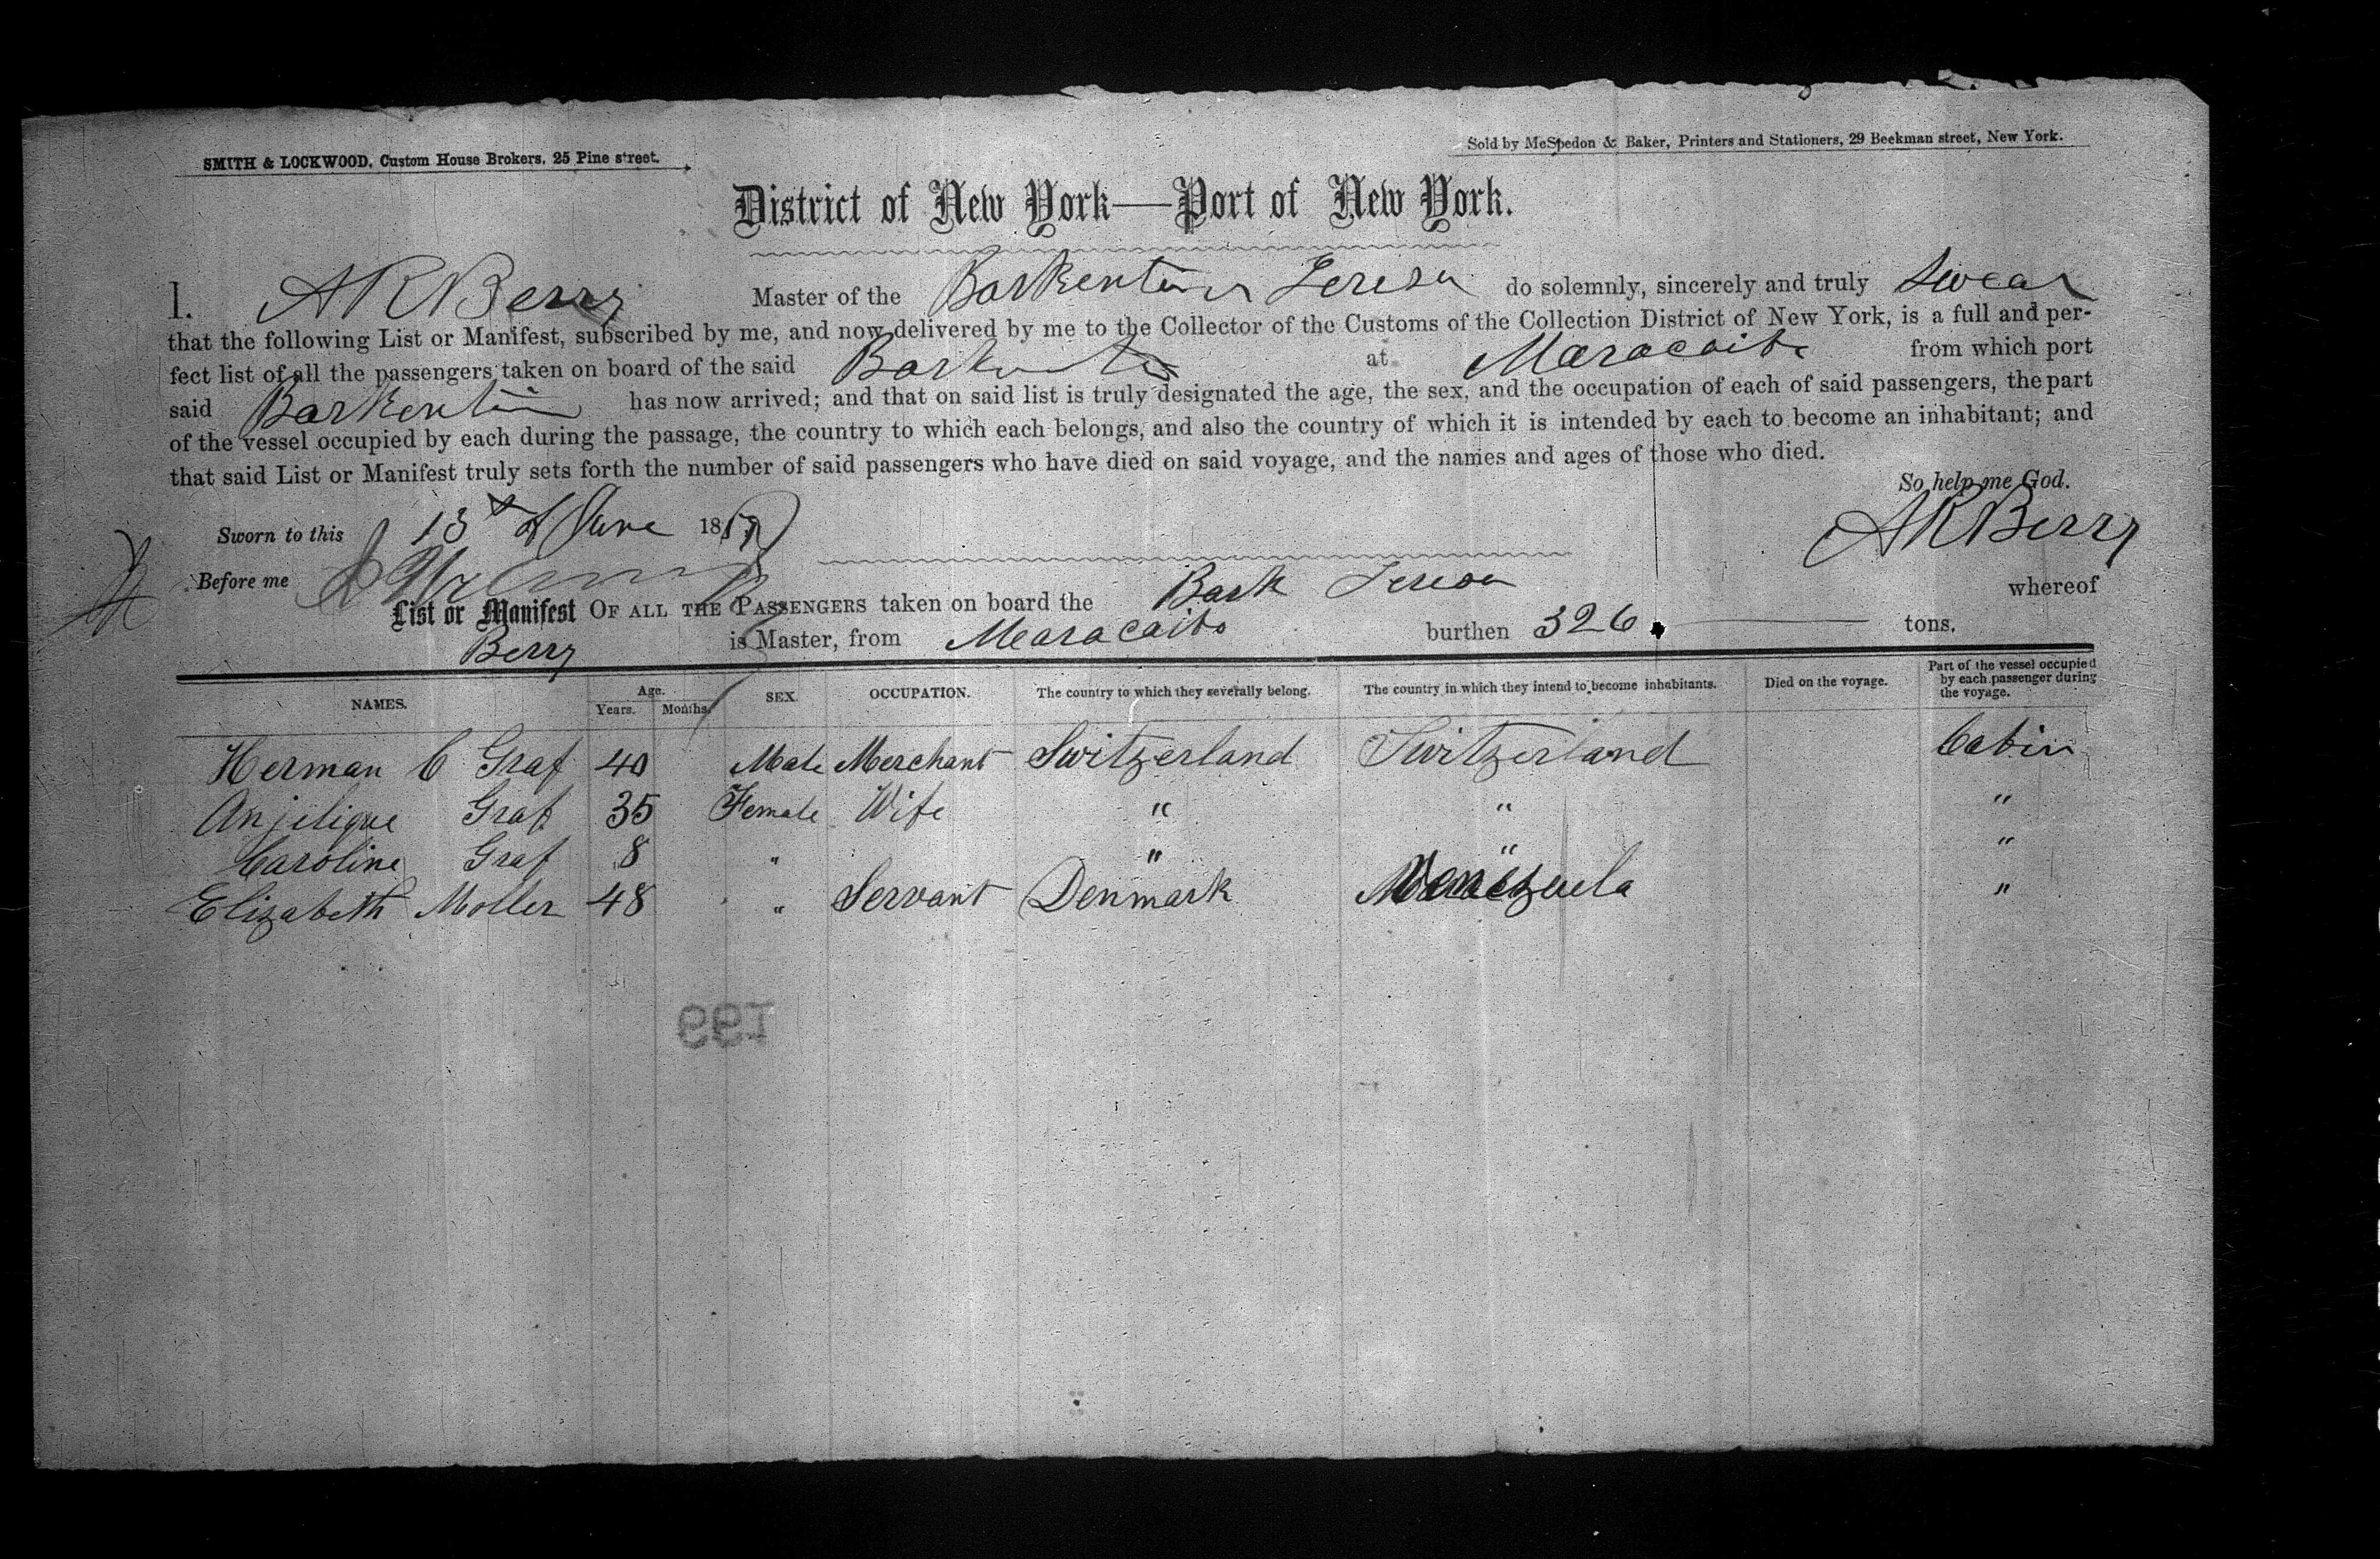 SMITH & LOCKWOOD, Custom House Brokers, 25 Pine street.
Sold by McSpedon & Baker, Printers and Stationers, 29 Beekman street, New York.
District of New York—Port of New York.
I. A R Berry Master of the Barkentine Teresa do solemnly, sincerely and truly swear
that the following List or Manifest, subscribed by me, and now delivered by me to the Collector of the Customs of the Collection District of New York, is a full and per-
fect list of all the passengers taken on board of the said Barkentin at Maracaibo from which port
said Barkentin has now arrived; and that on said list is truly designated the age, the sex, and the occupation of each of said passengers, the part
of the vessel occupied by each during the passage, the country to which each belongs, and also the country of which it is intended by each to become an inhabitant; and
that said List or Manifest truly sets forth the number of said passengers who have died on said voyage, and the names and ages of those who died.
So help me God.
Sworn to this 13th of June 18
A R Berry
Before me
List or Manifest OF ALL THE PASSENGERS taken on board the Bark Teresa whereof
Berry is Master, from Maracaibo burthen 326 tons.
NAMES. Age. Years. Months. SEX. OCCUPATION. The country to which they severally belong. The country in which they intend to become inhabitants. Died on the voyage. Part of the vessel occupied by each passenger during the voyage.
Herman C Graf 40 Male Merchant Switzerland Switzerland Cabin
Anjelique Graf 35 Female Wife " " "
Caroline Graf 8 " " " "
Elizabeth Moller 48 " Servant Denmark Venezuela "
199